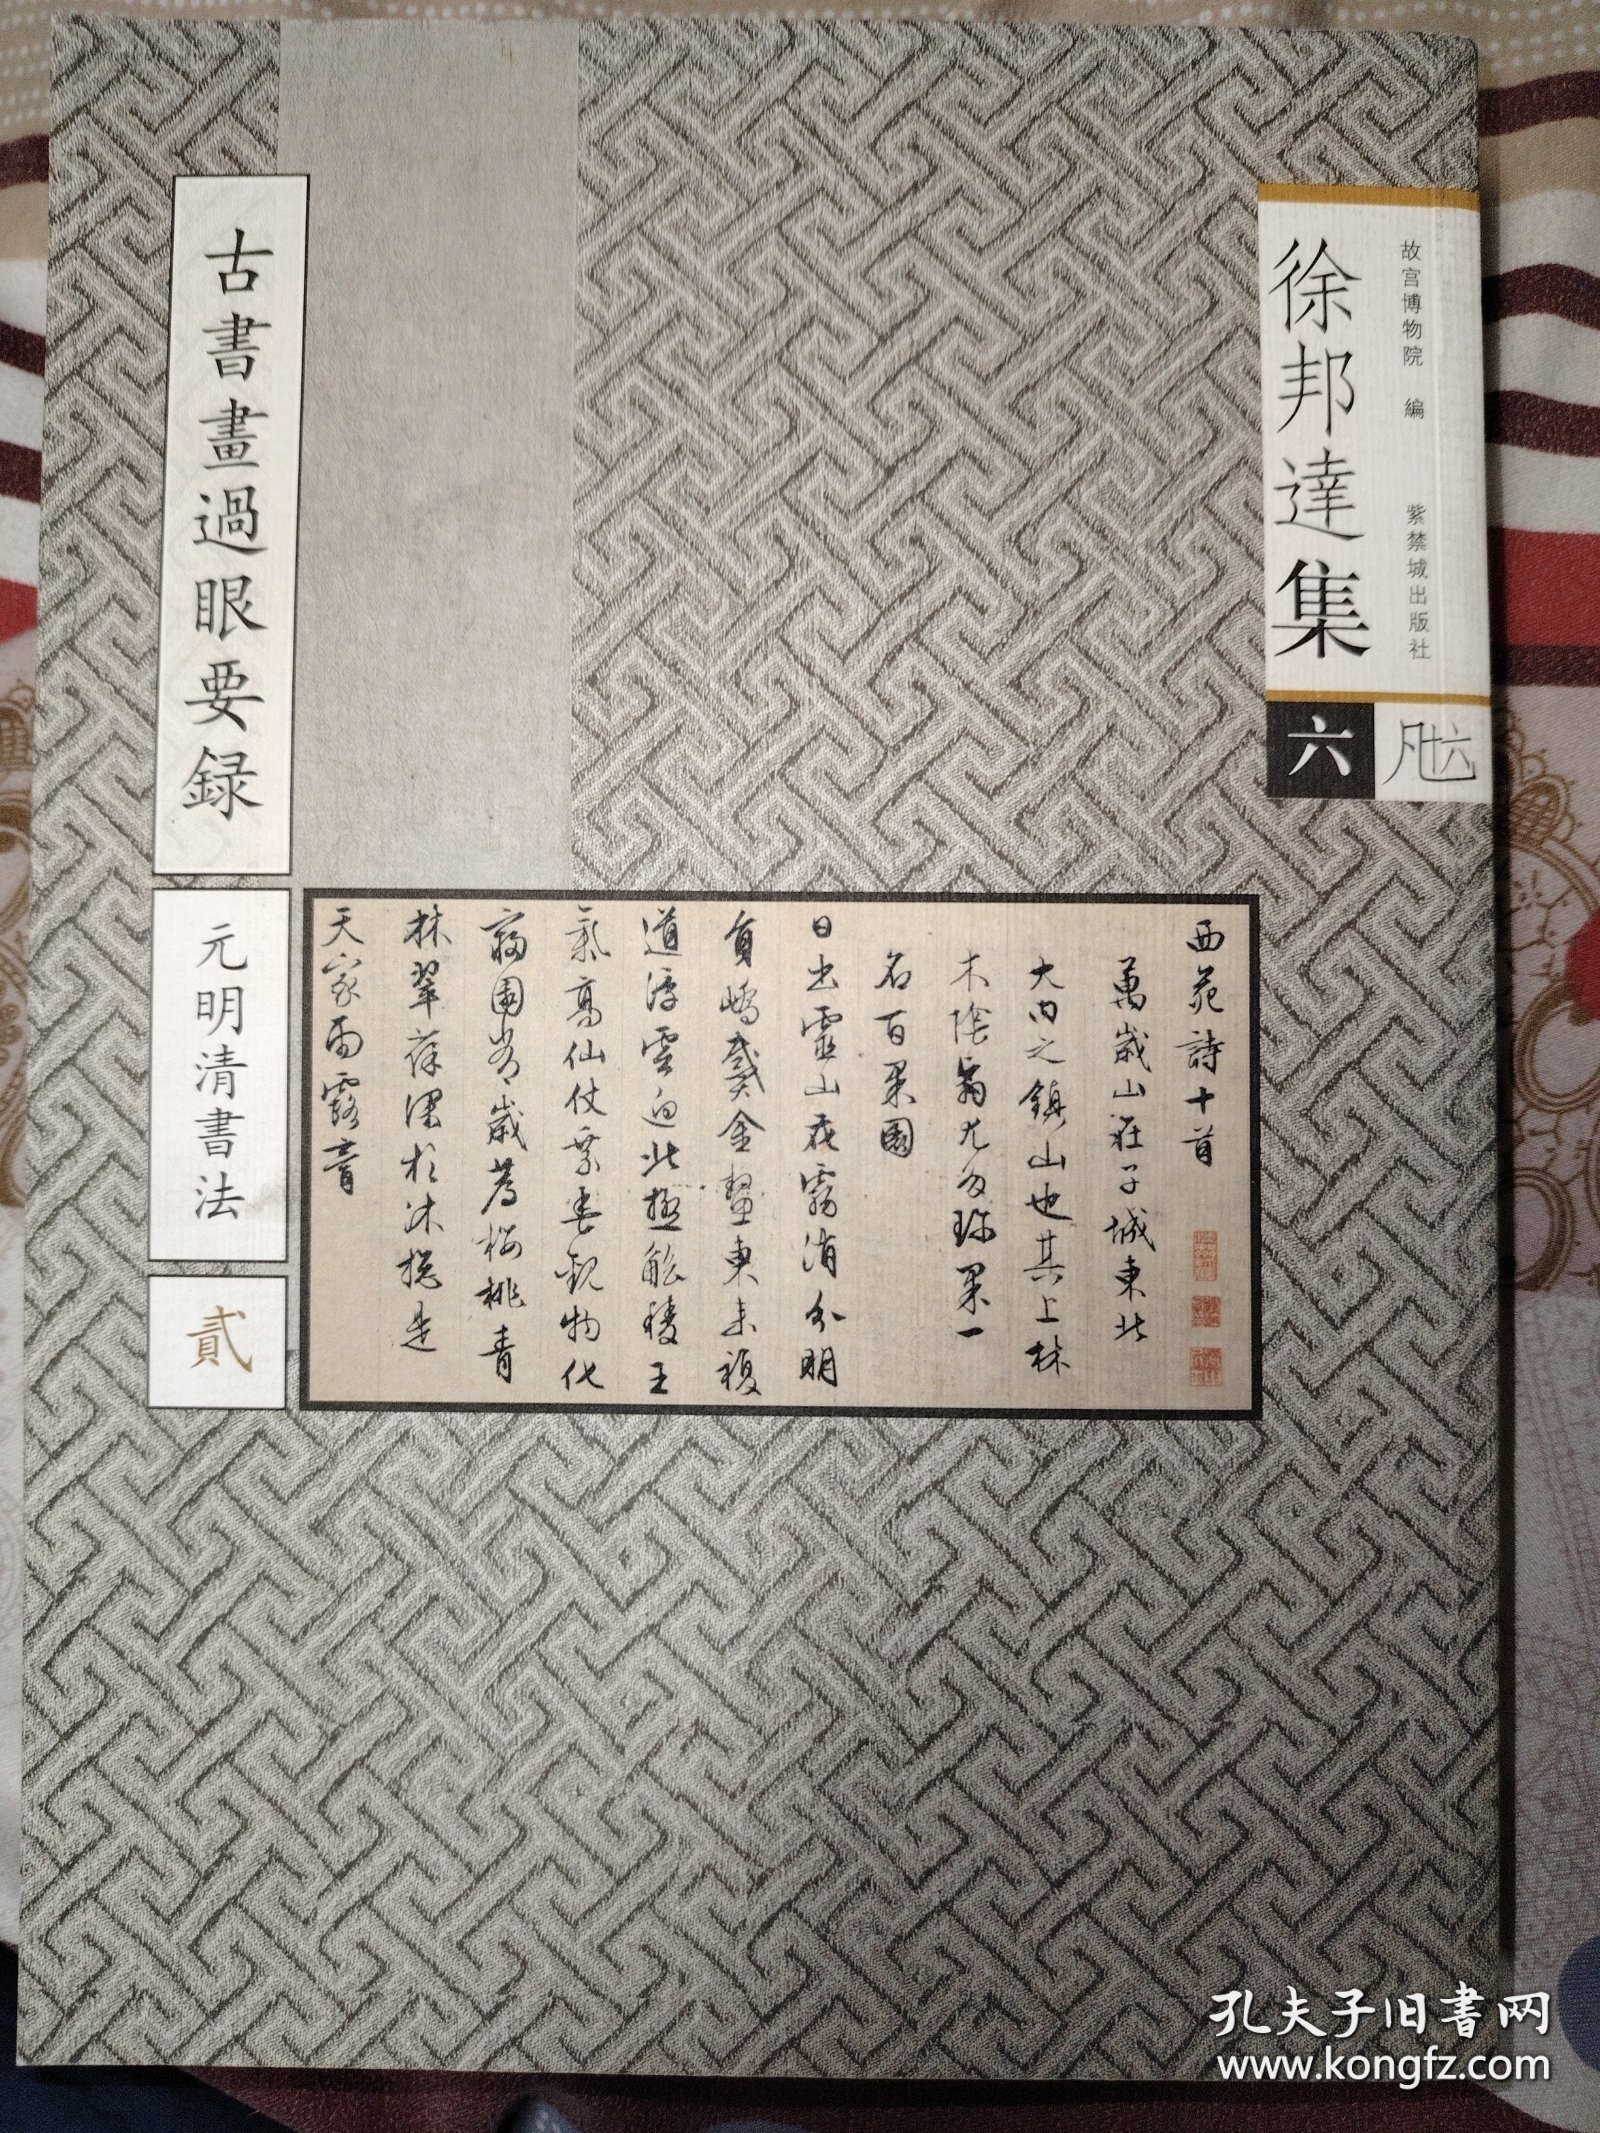 故宫博物院 編
紫禁城出版社
徐邦達集
六
凡十六
古書畫過眼要録
元明清書法
貳
西苑詩十首
萬歲山在子城東北
大内之鎮山也其上林
木陰翳尤多珍果一
名百果園
日出靈山花霧消分明
員嶠戴金鼇東來復
道浮雲迥北極觚稜王
氣高仙仗乘春觀物化
寢園常歲薦櫻桃青
林翠葆深於沐揔是
天家雨露膏
孔夫子旧書网
www.kongfz.com